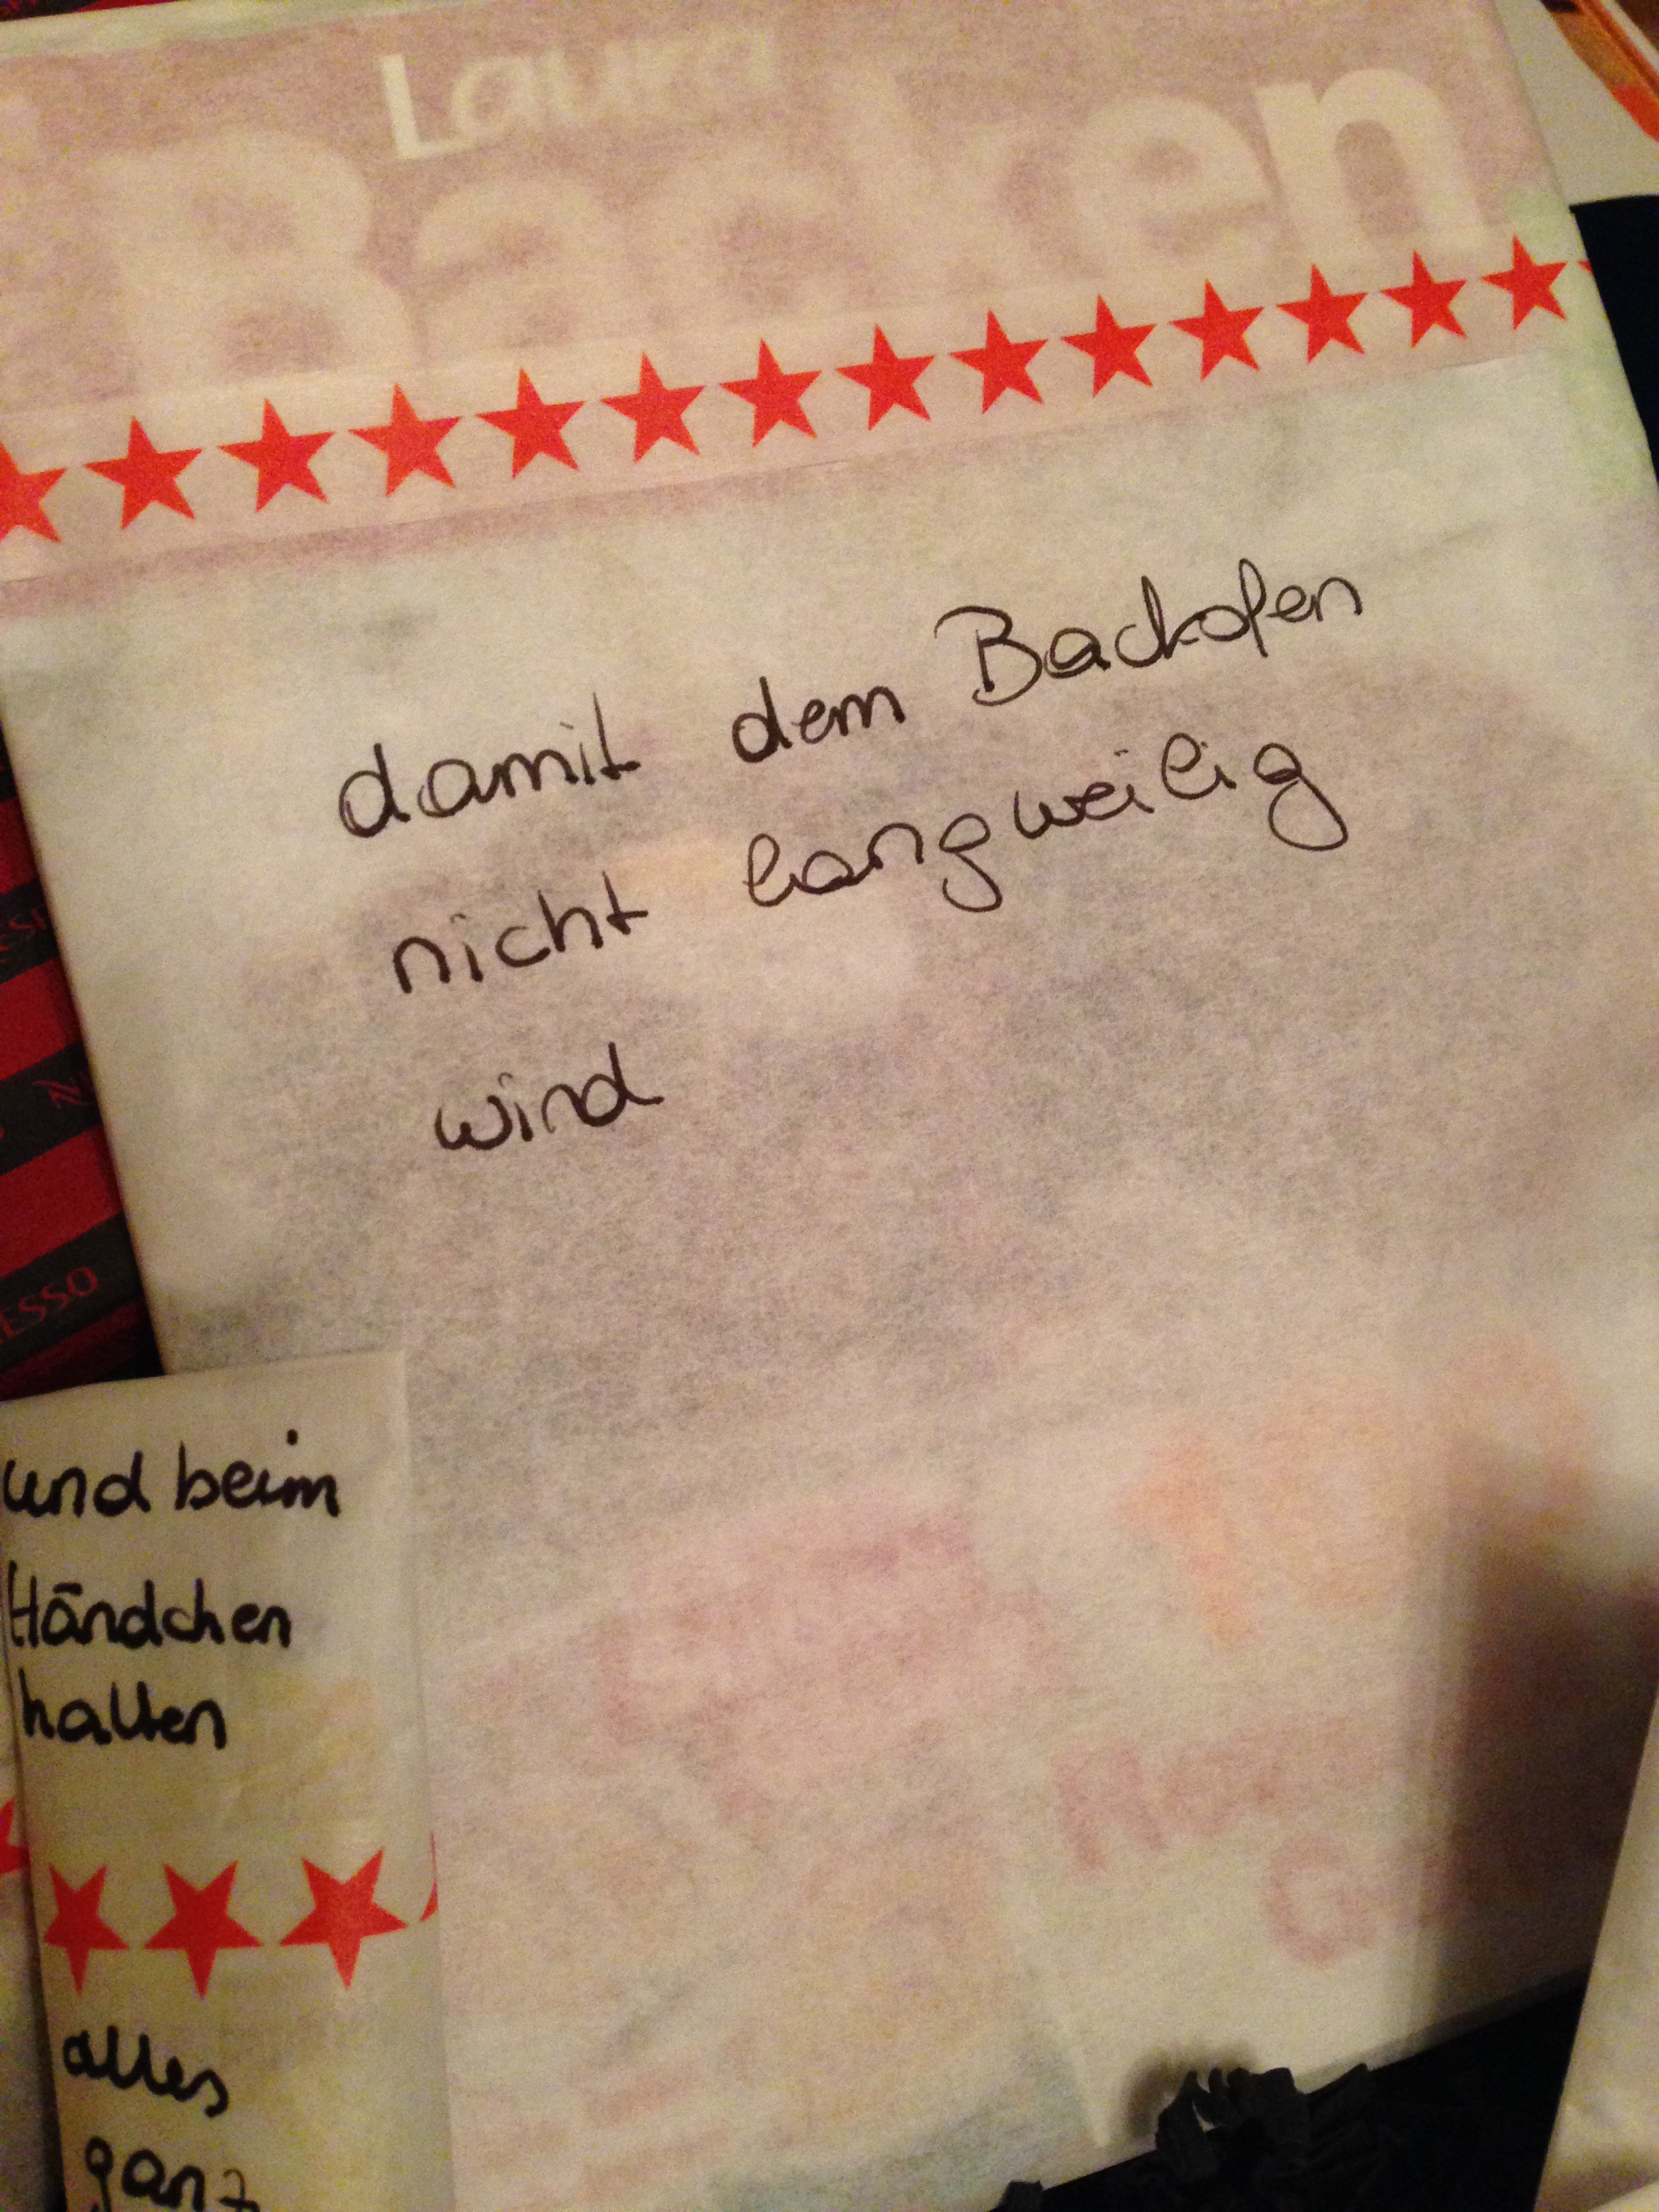 Laura
Backen
damit dem Backofen
nicht langweilig
wird
und beim
Händchen
halten
alles
ganz
ESSO